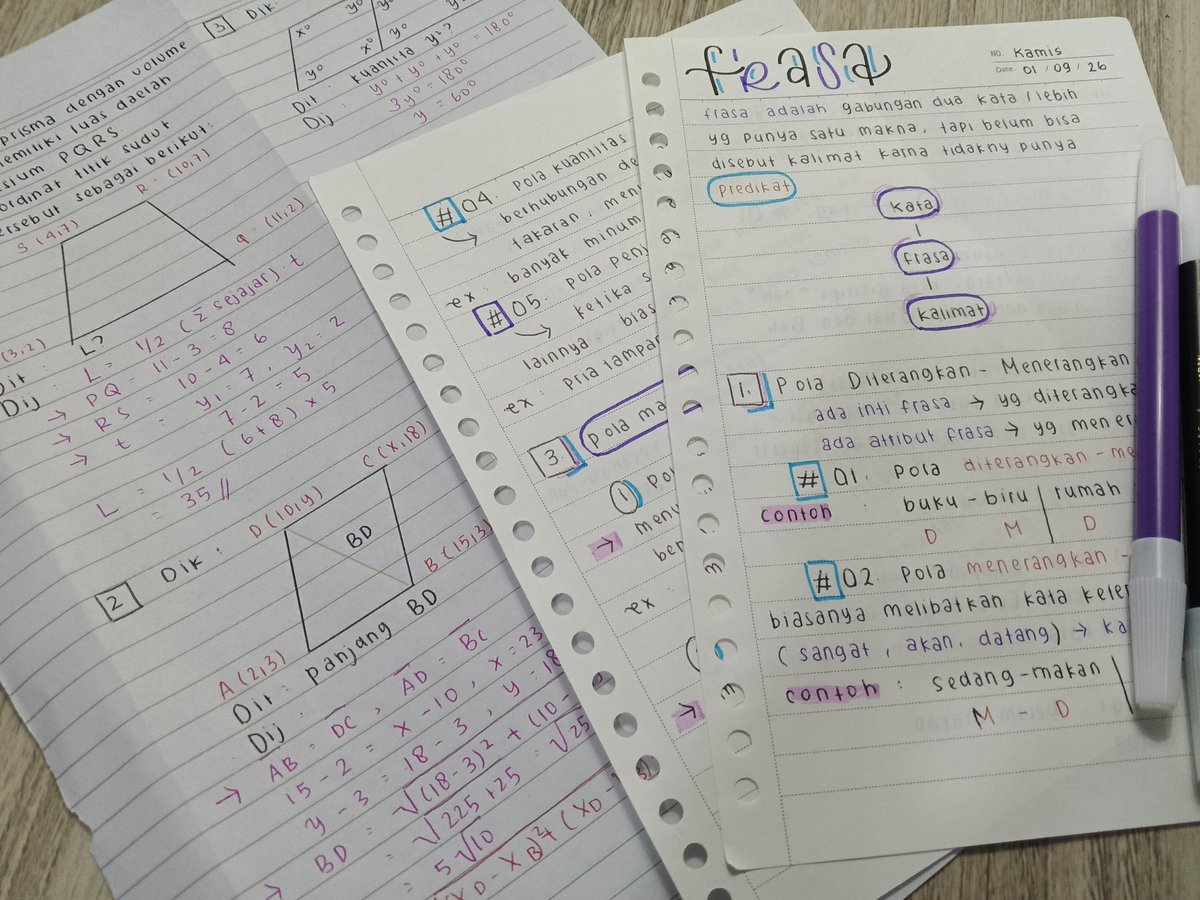 prisma dengan volume
memiliki luas daerah
PQRS
titik sudut
sebagai berikut:
S (4,7)
R : (10,7)
Q : (11,2)
(3,2)
L?
Dit :
Dij : L = 1/2 (Σ sejajar). t
→ PQ = 11 - 3 = 8
→ RS = 10 - 4 = 6
→ t = y₁ = 7, y₂ = 2
7 - 2 = 5
L = 1/2 (6+8) x 5
= 35 //
2 Dik :
D (10,y)
C (X,18)
BD
B (15,3)
A (2,3)
Dit : panjang BD
Dij : AD = BC
→ AB = DC,
15 - 2 = x - 10, x = 23
y - 3 = 18 - 3, y = 18
→ BD = √(18-3)² + (10-
= √225 + 25 = √25
= 5√10
XD - XB)² + (XD -
3 Dik :
x° y°
x° y°
y°
Dit : kuantila y?
Dij : y° + y° + y° = 180°
3y° = 180°
y = 60°
#04. Pola kuantitas
→ berhubungan de
takaran, men
ex : banyak minum
#05. Pola peny
→ ketika s
lainnya bias
ex : pria tampan
3 Pola ma
1 Po
→ meny
ber
ex :
→
frasa
NO. Kamis
Date. 01 / 09 / 26
frasa adalah gabungan dua kata / lebih
yg punya satu makna, tapi belum bisa
disebut kalimat karna tidakny punya
Predikat
kata
frasa
kalimat
1. Pola Diterangkan - Menerangkan
ada inti frasa → yg diterangka
ada atribut frasa → yg mener
#01. Pola diterangkan - me
contoh : buku - biru | rumah
D M | D
#02. Pola menerangkan -
biasanya melibatkan kata keter
(sangat, akan, datang) → ka
contoh : sedang-makan
M - D